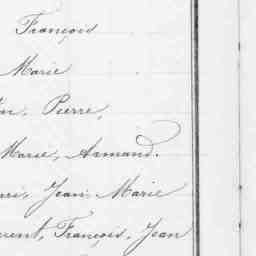 François
Marie
Pierre,
Marie, Armand.
Jean Marie
François, Jean